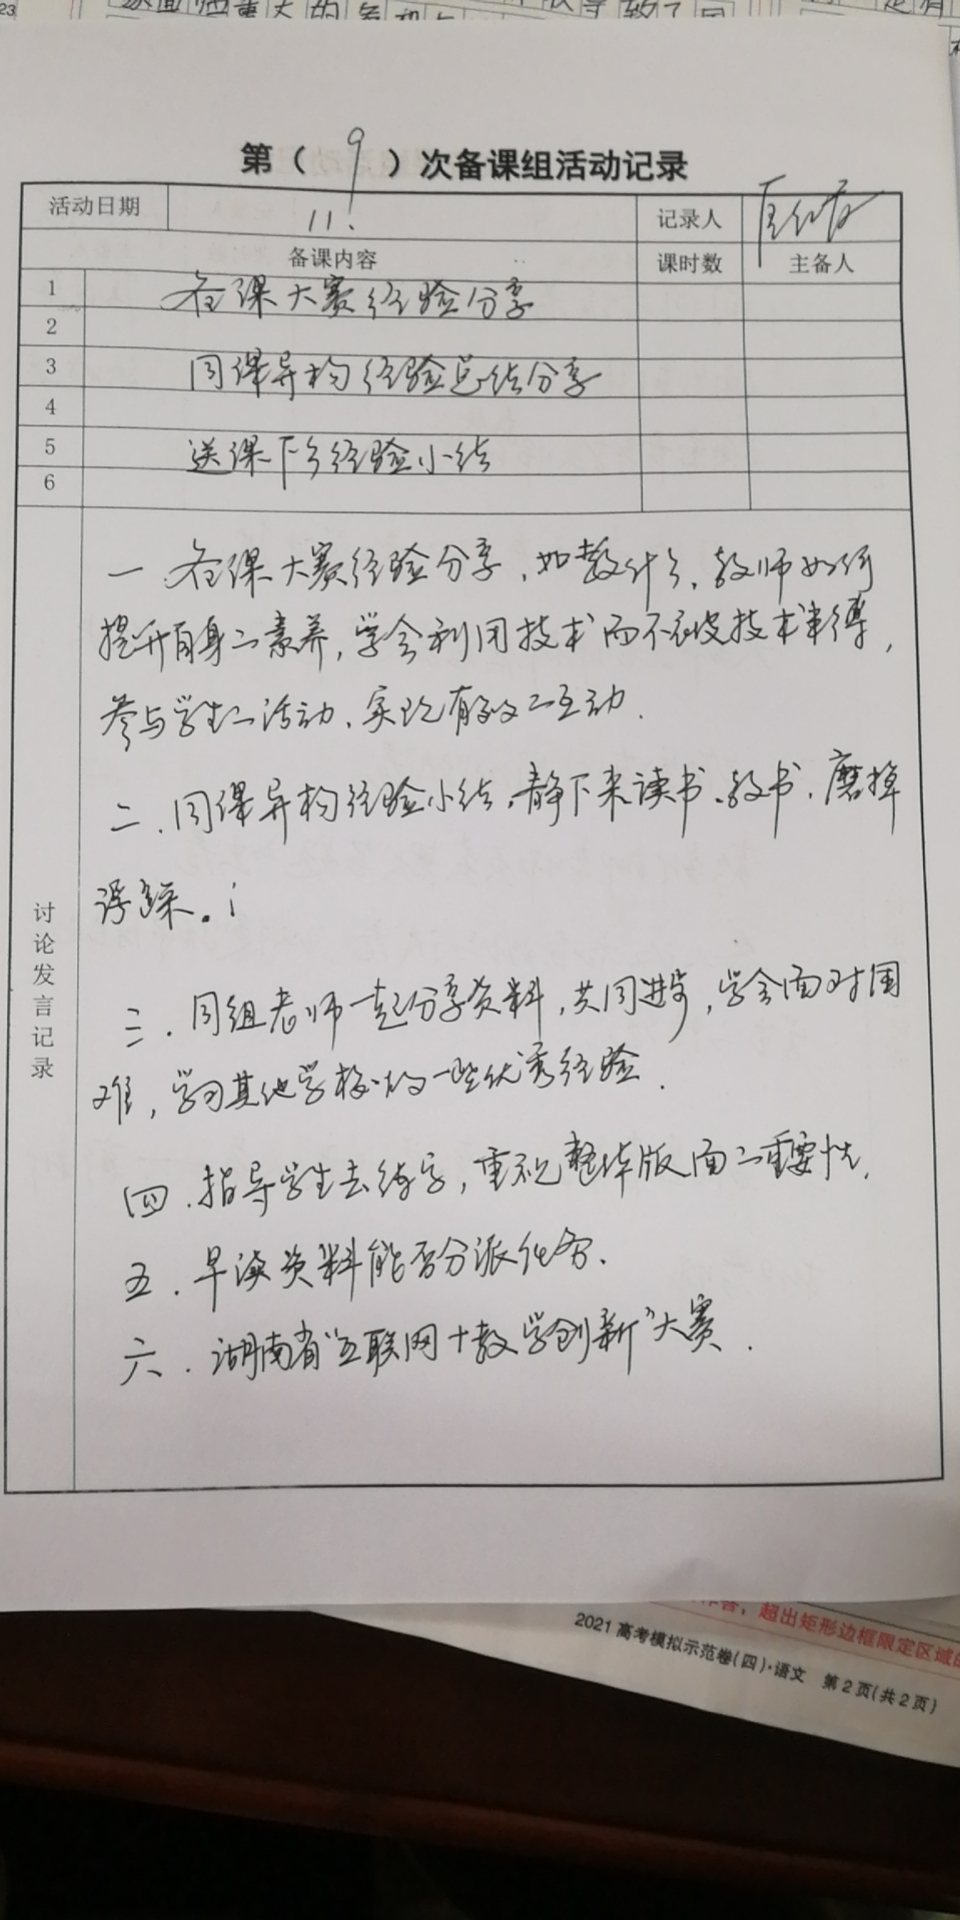 第（9）次备课组活动记录
活动日期 11. 记录人
备课内容 课时数 主备人
1 备课大赛经验分享
2
3 同课异构经验总结分享
4
5 送课下乡经验小结
6
讨论发言记录
一.备课大赛经验分享，如教什么，教师如何
提升自身的素养，学会利用技术而不被技术束缚，
参与学生的活动，实现有效的互动.
二.同课异构经验小结，静下来读书、教书，磨掉
浮躁。
三.同组老师一起分享资料，共同进步，学会面对困
难，学习其他学校的一些优秀经验.
四.指导学生去练字，重视整体版面的重要性.
五.早读资料能否分派任务.
六.湖南省“互联网+教学创新”大赛.
超出矩形边框限定区域
2021高考模拟示范卷(四)·语文 第2页(共2页)